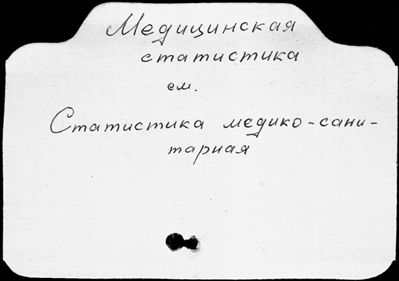 Медицинская
статистика
см.
Статистика медико-сани-
тарная